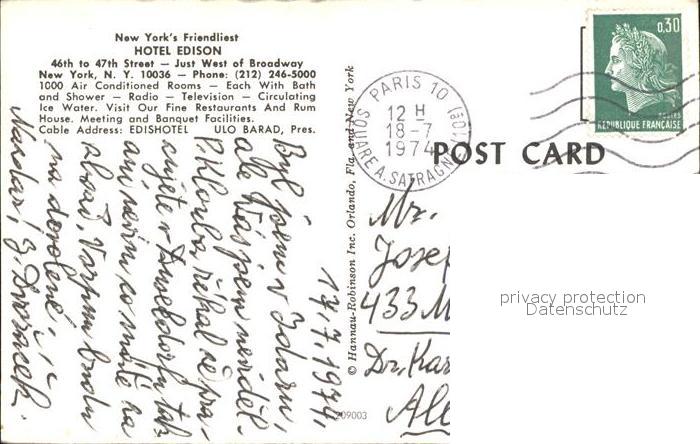 New York's Friendliest
HOTEL EDISON
46th to 47th Street — Just West of Broadway
New York, N. Y. 10036 — Phone: (212) 246-5000
1000 Air Conditioned Rooms — Each With Bath
and Shower — Radio — Television — Circulating
Ice Water. Visit Our Fine Restaurants And Rum
House. Meeting and Banquet Facilities.
Cable Address: EDISHOTEL ULO BARAD, Pres.
17.7.1974.
Byl jsem v Idaru,
ale Vás jsem neviděl.
P. Klouba říkal že pra-
cujete v Dusseldorfu tak
ani nevím co máte za
Vozpmu budu
na dovolené.
© Hannau-Robinson Inc. Orlando, Fla. and New York
209003
PARIS 10
12 H
18-7
1974
SQUARE A. SATRAGNE (10e)
0,30
POSTES
REPUBLIQUE FRANÇAISE
POST CARD
Mr.
Josef
433 M
Dr. Kar
Ale
privacy protection
Datenschutz